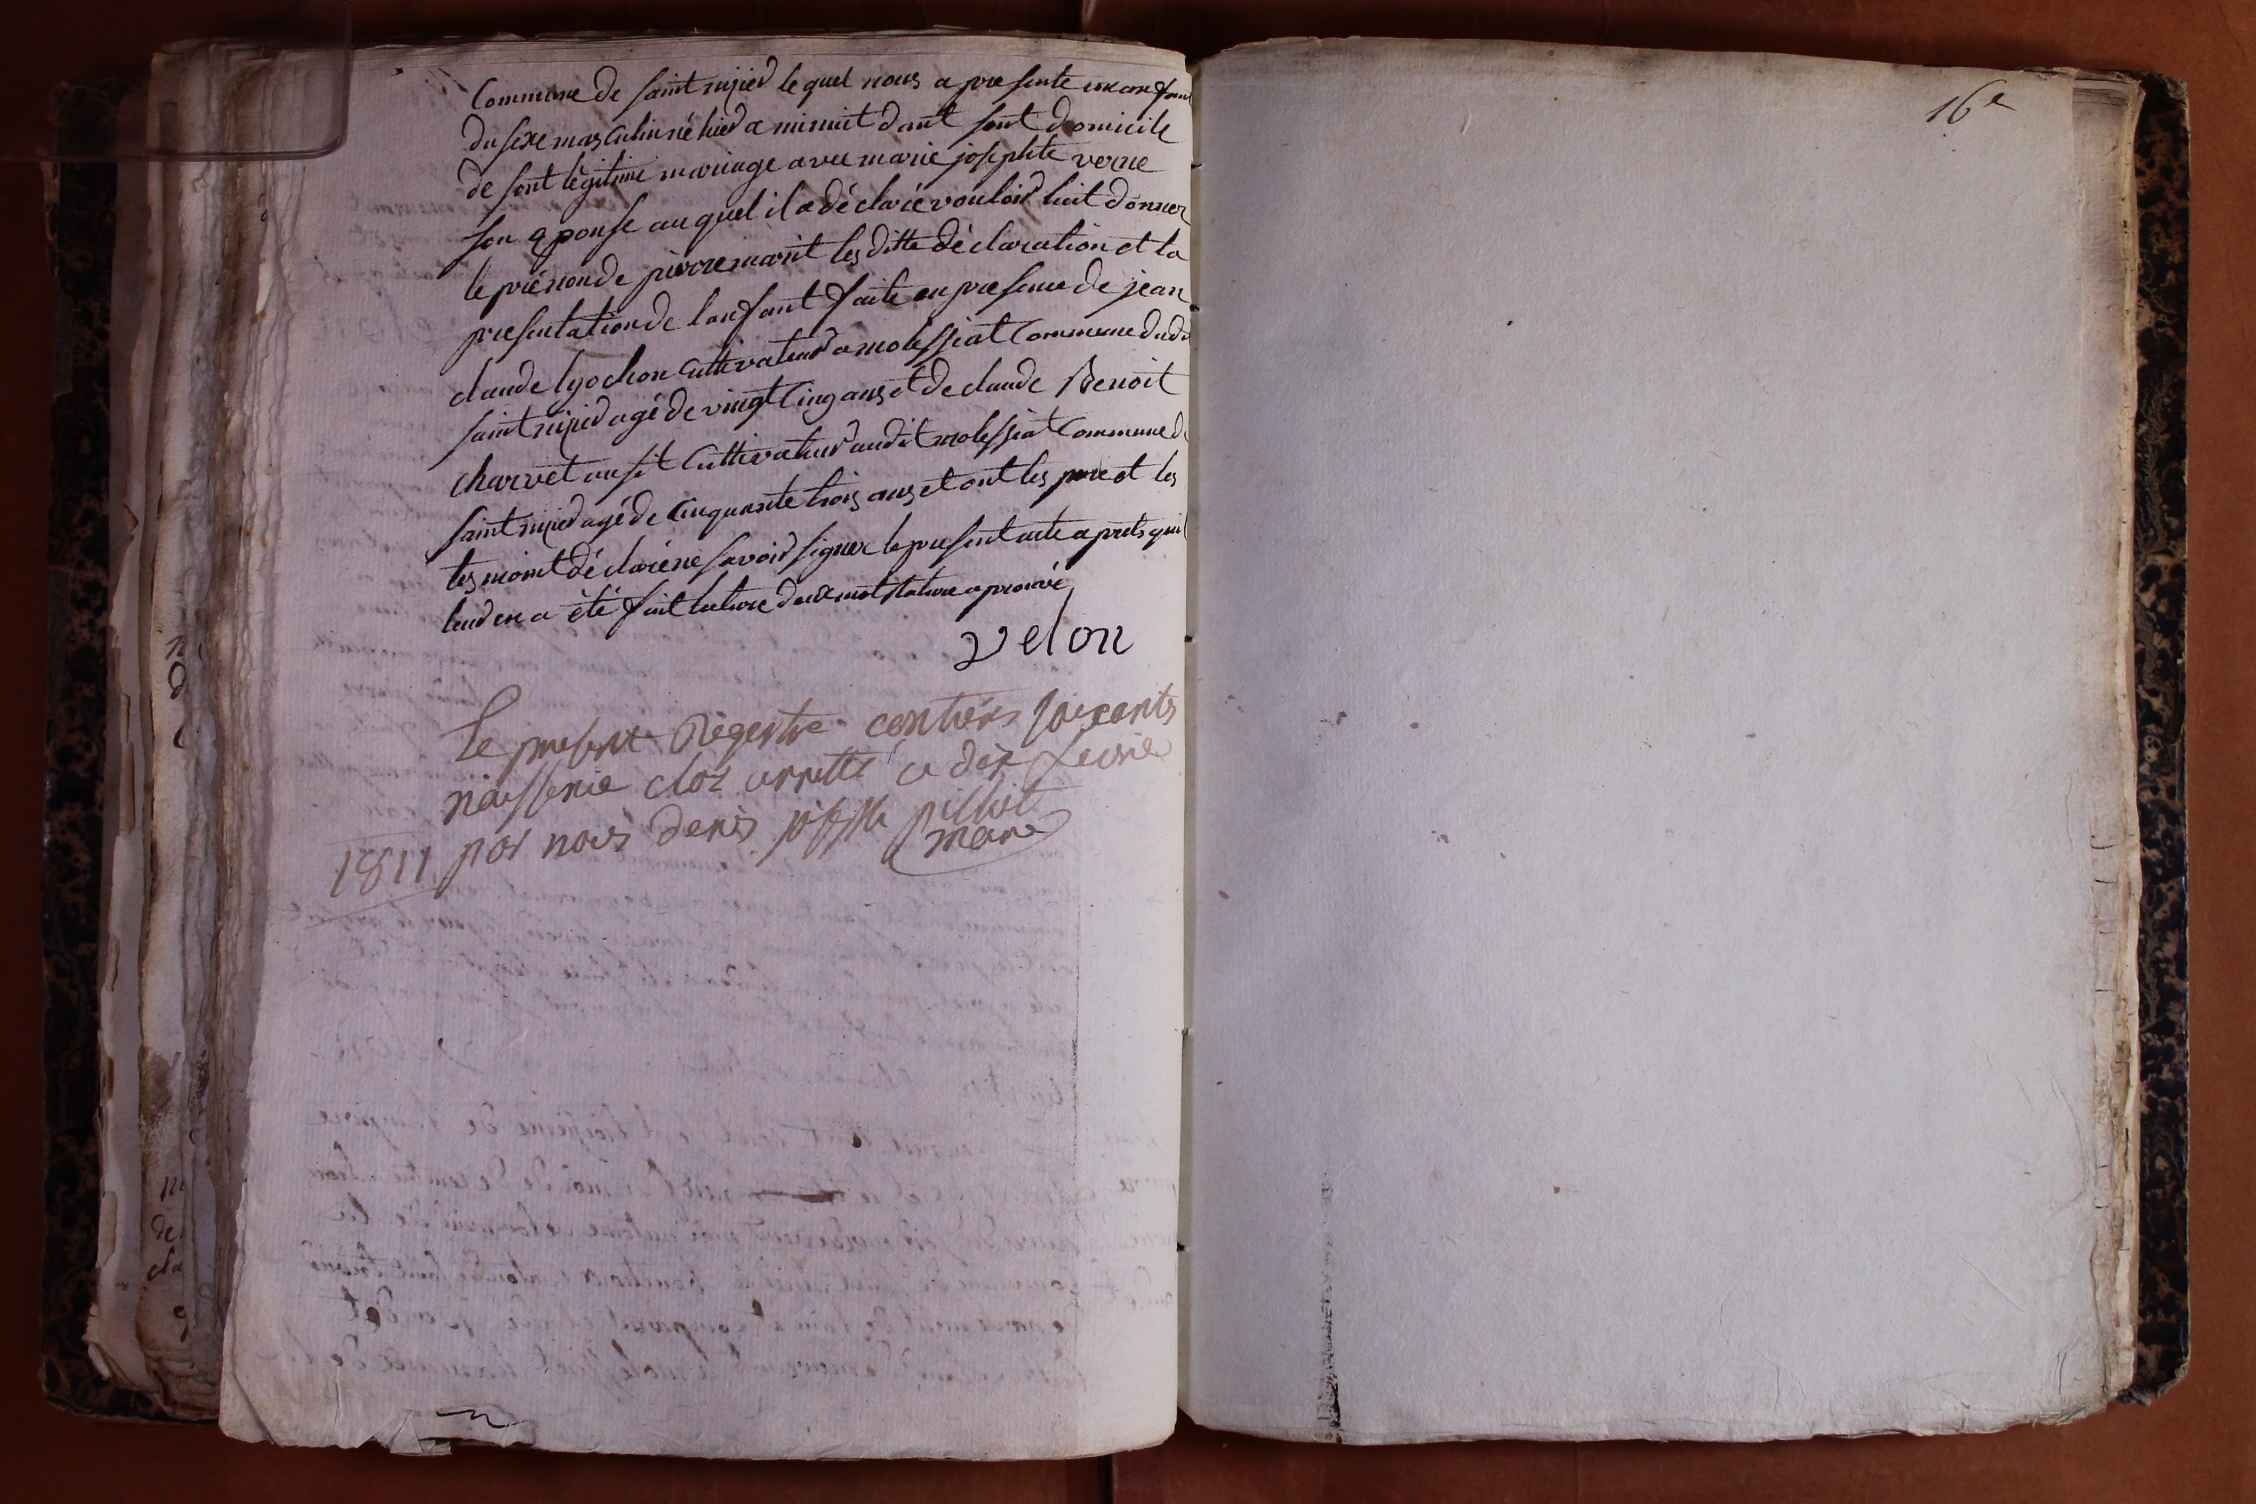 Commune de saint nizied le quel nous a presente un enfant
du sexe masculin né hied a minuit dant sont domicile
de sont légitime mariage avec marie josephte verne
son epouse au quel il a déclaré vouloir luit donner
le prénon de pierre marit les ditte déclaration et la
presentation de l'anfant faite en presence de jean
claude lyochon cultivateur a molessiat Commune dudit
saint nizied agé de vingt cinq ans et de claude Benoit
charvet ausit cultivateur audit molessiat Commune de
saint nizied agé de cinquante trois ans et ont les pere et les
tesmoint déclaré ne savoir signer le present acte aprets quil
leud en a été fait lecture deux mot rature aprouvé
velon
Le present Régestre contiens soixante
naissence cloz arretté ce dix fevrie
1811 par nous denis josephe pilliot
mare
16e
n
d
de
cla